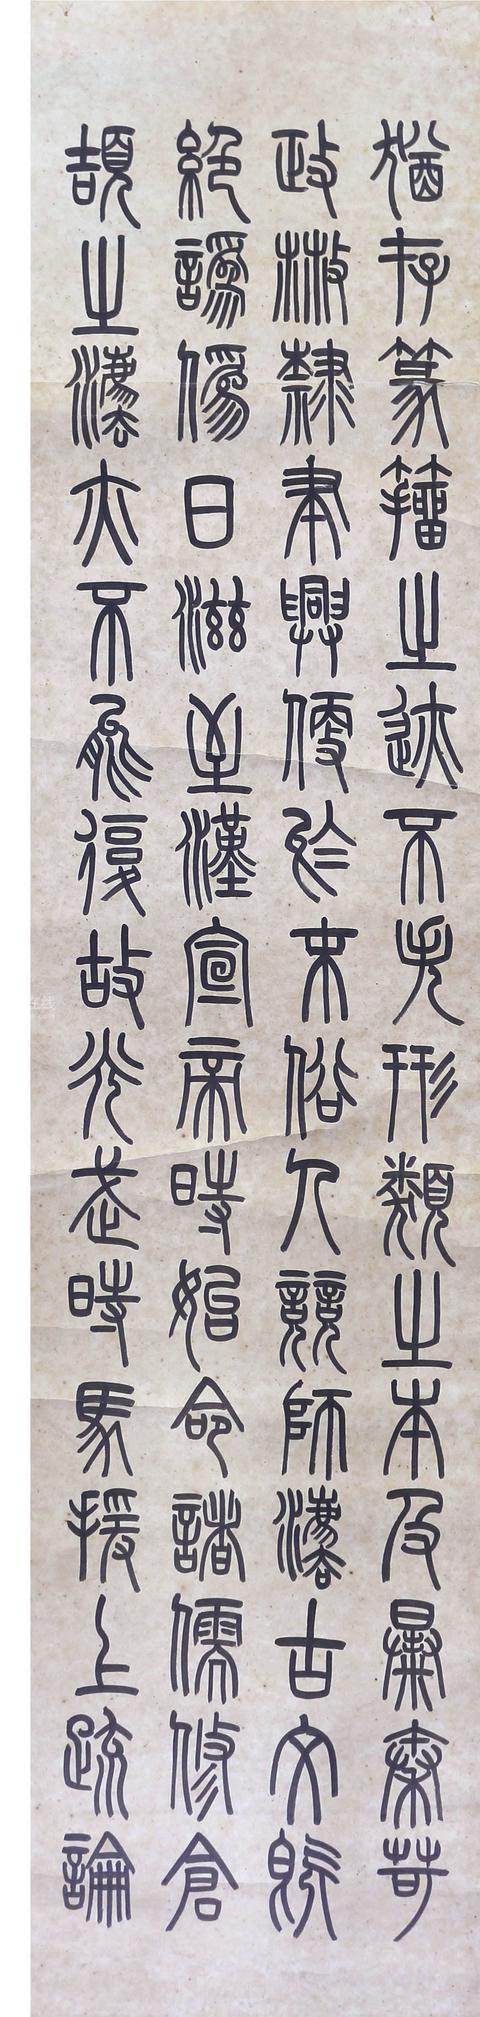 猶存篆籀之迹不失形類之本及暴秦苛
政散隸聿興便於末俗人競師灋古文既
絕譌偽日滋至漢宣帝時始命諸儒修倉
頡之灋亦不能復故光武時馬援上疏論
在线